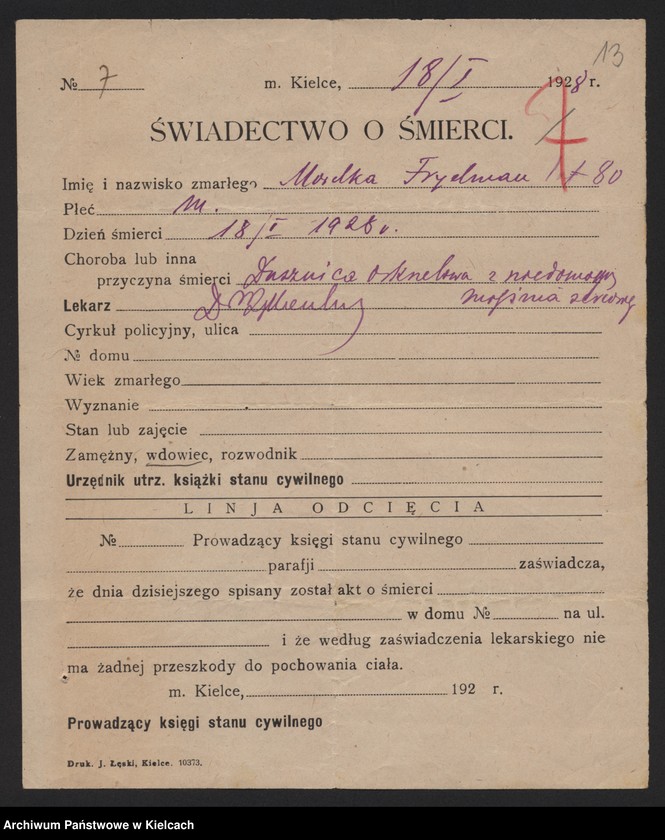 13
№ 7 m. Kielce, 18/I 1928 r.
7
ŚWIADECTWO O ŚMIERCI.
Imię i nazwisko zmarłego Mordka Frydman 80
Płeć m.
Dzień śmierci 18/I 1928 r.
Choroba lub inna
przyczyna śmierci Dusznica oskrzelowa z niedomogą
mięśnia
Lekarz D
Cyrkuł policyjny, ulica
№ domu
Wiek zmarłego
Wyznanie
Stan lub zajęcie
Zamężny, wdowiec, rozwodnik
Urzędnik utrz. książki stanu cywilnego
LINJA ODCIĘCIA
№ Prowadzący księgi stanu cywilnego
parafji zaświadcza,
że dnia dzisiejszego spisany został akt o śmierci
w domu № na ul.
i że według zaświadczenia lekarskiego nie
ma żadnej przeszkody do pochowania ciała.
m. Kielce, 192 r.
Prowadzący księgi stanu cywilnego
Druk. J. Łęski, Kielce. 10373.
Archiwum Państwowe w Kielcach